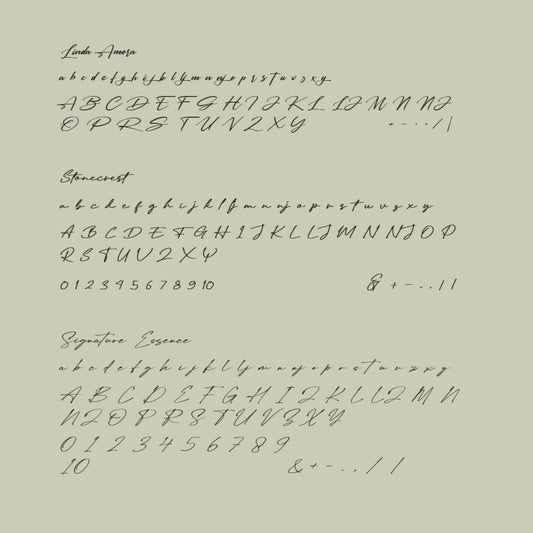 Linda Amora
a b c d e f g h i j k l lj m n nj o p r s t u v z x y
A B C D E F G H I J K L LJ M N NJ
O P R S T U V Z X Y + - . . / \
Stonecrest
a b c d e f g h i j k l lj m n nj o p r s t u v s x y
A B C D E F G H I J K L LJ M N NJ O P
R S T U V Z X Y
0 1 2 3 4 5 6 7 8 9 10 & + - . . / |
Signature Essence
a b c d e f g h i j k l lj m n nj o p r s t u v z x y
A B C D E F G H I J K L LJ M N
NJ O P R S T U V Z X Y
0 1 2 3 4 5 6 7 8 9
10 & + - . . / /